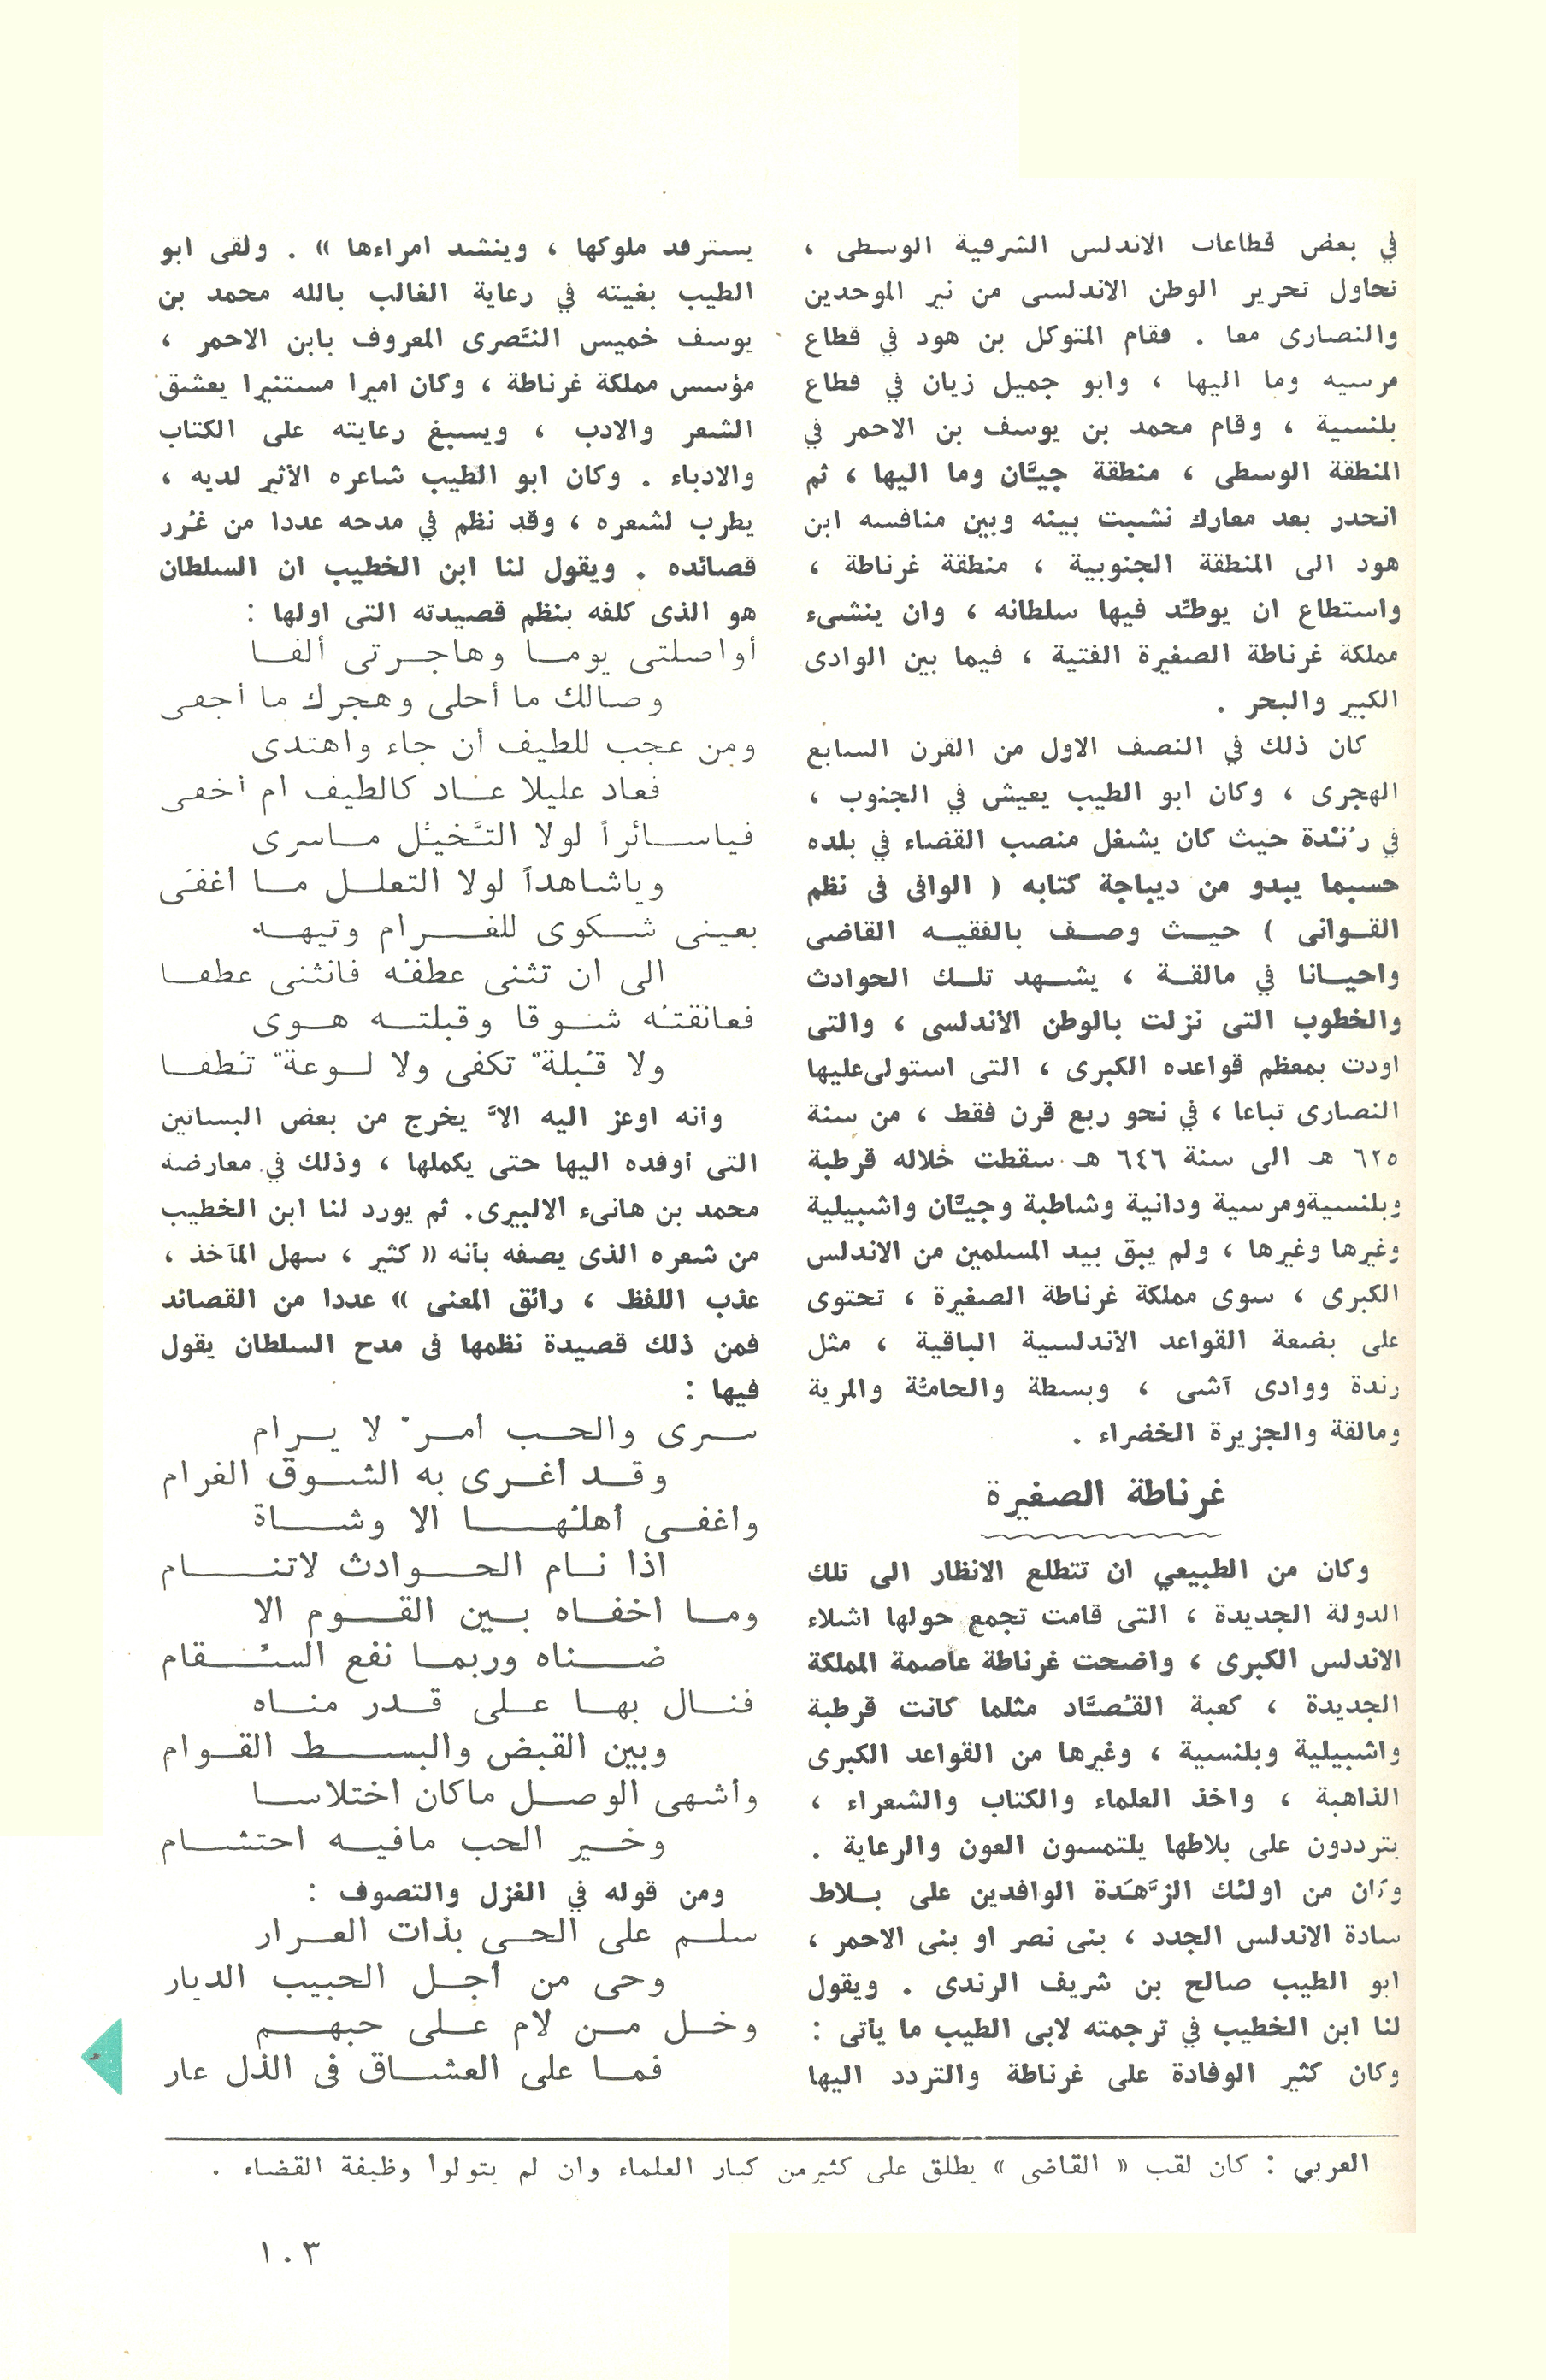 في بعض قطاعات الاندلس الشرقية الوسطى ،
تحاول تحرير الوطن الاندلسى من نير الموحدين
والنصارى معا . فقام المتوكل بن هود في قطاع
مرسيه وما اليها ، وابو جميل زيان في قطاع
بلنسية ، وقام محمد بن يوسف بن الاحمر في
المنطقة الوسطى ، منطقة جيَّان وما اليها ، ثم
انحدر بعد معارك نشبت بينه وبين منافسه ابن
هود الى المنطقة الجنوبية ، منطقة غرناطة ،
واستطاع ان يوطِّد فيها سلطانه ، وان ينشىء
مملكة غرناطة الصغيرة الفتية ، فيما بين الوادى
الكبير والبحر .
كان ذلك في النصف الاول من القرن السابع
الهجرى ، وكان ابو الطيب يعيش في الجنوب ،
في رُنْدة حيث كان يشغل منصب القضاء في بلده
حسبما يبدو من ديباجة كتابه ( الوافى فى نظم
القوانى ) حيث وصف بالفقيه القاضى
واحيانا في مالقة ، يشهد تلك الحوادث
والخطوب التى نزلت بالوطن الأندلسى ، والتى
اودت بمعظم قواعده الكبرى ، التى استولى عليها
النصارى تباعا ، في نحو ربع قرن فقط ، من سنة
٦٢٥ هـ الى سنة ٦٤٦ هـ . سقطت خلاله قرطبة
وبلنسية ومرسية ودانية وشاطبة وجيَّان واشبيلية
وغيرها وغيرها ، ولم يبق بيد المسلمين من الاندلس
الكبرى ، سوى مملكة غرناطة الصغيرة ، تحتوى
على بضعة القواعد الأندلسية الباقية ، مثل
رندة ووادى آشى ، وبسطة والحامَّة والمرية
ومالقة والجزيرة الخضراء .
غرناطة الصغيرة
وكان من الطبيعي ان تتطلع الانظار الى تلك
الدولة الجديدة ، التى قامت تجمع حولها اشلاء
الاندلس الكبرى ، واضحت غرناطة عاصمة المملكة
الجديدة ، كعبة القُصَّاد مثلما كانت قرطبة
واشبيلية وبلنسية ، وغيرها من القواعد الكبرى
الذاهبة ، واخذ العلماء والكتاب والشعراء ،
يترددون على بلاطها يلتمسون العون والرعاية .
وكان من اولئك الزَّهَدة الوافدين على بلاط
سادة الاندلس الجدد ، بنى نصر او بنى الاحمر ،
ابو الطيب صالح بن شريف الرندى . ويقول
لنا ابن الخطيب في ترجمته لابى الطيب ما يأتى :
وكان كثير الوفادة على غرناطة والتردد اليها
يسترفد ملوكها ، وينشد امراءها » . ولقى ابو
الطيب بغيته في رعاية الغالب بالله محمد بن
يوسف خميس النَّصرى المعروف بابن الاحمر ،
مؤسس مملكة غرناطة ، وكان اميرا مستنيرا يعشق
الشعر والادب ، ويسبغ رعايته على الكتاب
والادباء . وكان ابو الطيب شاعره الأثير لديه ،
يطرب لشعره ، وقد نظم في مدحه عددا من غُرر
قصائده . ويقول لنا ابن الخطيب ان السلطان
هو الذى كلفه بنظم قصيدته التى اولها :
أواصلتى يوما وهاجرتى ألفا
وصالك ما أحلى وهجرك ما أجفى
ومن عجب للطيف أن جاء واهتدى
فعاد عليلا عاد كالطيف ام أخفى
فياسائراً لولا التَّخيُّل ماسرى
وياشاهداً لولا التعلل ما أغفى
بعينى شكوى للغرام وتيهه
الى ان تثنى عطفُه فانثنى عطفا
فعانقتُه شوقا وقبلته هوى
ولا قُبلة" تكفى ولا لوعة" تُطفا
وأنه اوعز اليه الاَّ يخرج من بعض البساتين
التى أوفده اليها حتى يكملها ، وذلك في معارضة
محمد بن هانىء الالبيرى . ثم يورد لنا ابن الخطيب
من شعره الذى يصفه بأنه « كثير ، سهل المآخذ ،
عذب اللفظ ، رائق المعنى » عددا من القصائد
فمن ذلك قصيدة نظمها فى مدح السلطان يقول
فيها :
سرى والحب أمر" لا يرام
وقد أغرى به الشوق الغرام
واغفى أهلُها الا وشاة
اذا نام الحوادث لاتنام
وما اخفاه بين القوم الا
ضناه وربما نفع السُقام
فنال بها على قدر مناه
وبين القبض والبسط القوام
وأشهى الوصل ماكان اختلاسا
وخير الحب مافيه احتشام
ومن قوله في الغزل والتصوف :
سلم على الحي بذات العرار
وحى من أجل الحبيب الديار
وخل من لام على حبهم
فما على العشاق فى الذل عار
العربي : كان لقب « القاضى » يطلق على كثير من كبار العلماء وان لم يتولوا وظيفة القضاء .
١٠٣